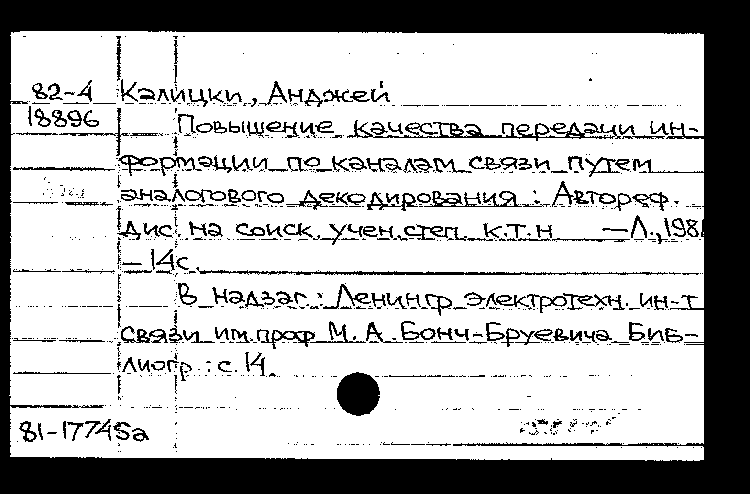 82-4 Калицки, Анджей
18896 Повышение качества передачи ин-
формации по каналам связи путем
аналогового декодирования : Автореф.
дис. на соиск. учен. степ. к.т.н — Л., 1981
— 14 с.
В надзаг : Ленингр электротехн. ин-т
связи им. проф М. А. Бонч-Бруевича Биб-
лиогр : с. 14.
81-17745а